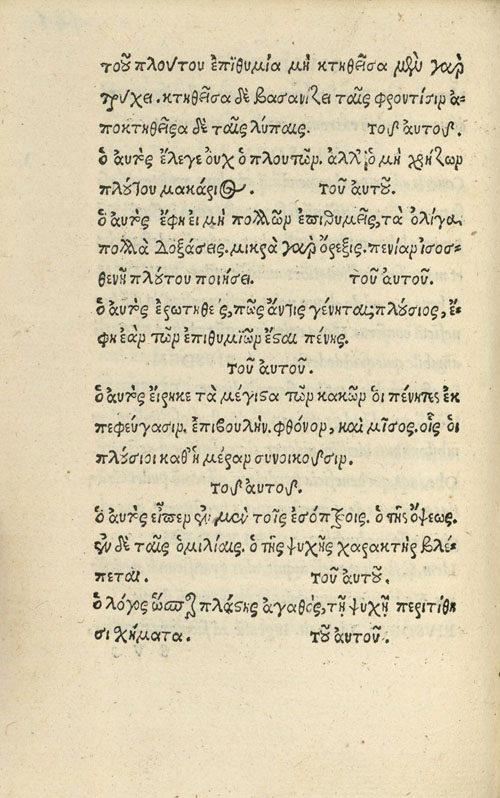 τοῦ πλούτου ἐπιθυμία μὴ κτηθεῖσα μὲν γὰρ
τρύχει. κτηθεῖσα δὲ βασανίζει ταῖς φροντίσιν ἀ-
ποκτηθεῖσα δὲ ταῖς λύπαις. τοῦ αὐτοῦ.
ὁ αὐτὸς ἔλεγε οὐχ ὁ πλουτῶν. ἀλλ' ὁ μὴ χρῄζων
πλούτου μακάριος. τοῦ αὐτοῦ.
ὁ αὐτὸς ἔφη εἰ μὴ πολλῶν ἐπιθυμεῖς, τὰ ὀλίγα
πολλὰ δοξάσεις. μικρὰ γὰρ ὄρεξις. πενίαν ἰσοσ-
θενῆ πλούτου ποιήσει. τοῦ αὐτοῦ.
ὁ αὐτὸς ἐρωτηθεὶς, πῶς ἄν τις γένηται πλούσιος, ἔ-
φη ἐὰν τῶν ἐπιθυμιῶν ἔσαι πένης.
τοῦ αὐτοῦ.
ὁ αὐτὸς εἴρηκε τὰ μέγιστα τῶν κακῶν ὁι πένητες ἐκ
πεφεύγασιν. ἐπιβουλὴν. φθόνον, καὶ μῖσος. οἷς ὁι
πλούσιοι καθ' ἡμέραν συνοικοῦσιν.
τοῦ αὐτοῦ.
ὁ αὐτὸς εἶπεν ἐν μὲν τοῖς ἐσόπτροις. ὁ τῆς ὄψεως.
ἐν δὲ ταῖς ὁμιλίαις. ὁ τῆς ψυχῆς χαρακτὴρ βλέ-
πεται. τοῦ αὐτοῦ.
ὁ λόγος ὥσπερ πλάστης ἀγαθὸς, τῇ ψυχῇ περιτίθη
σι χήματα. τοῦ αὐτοῦ.